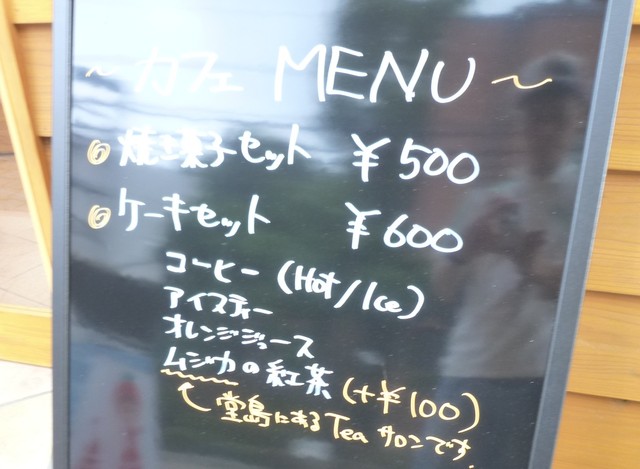 ～カフェ MENU～
焼き菓子セット ¥500
ケーキセット ¥600
コーヒー (Hot/Ice)
アイスティー
オレンジジュース
ムジカの紅茶 (+¥100)
堂島にあるTeaサロンです